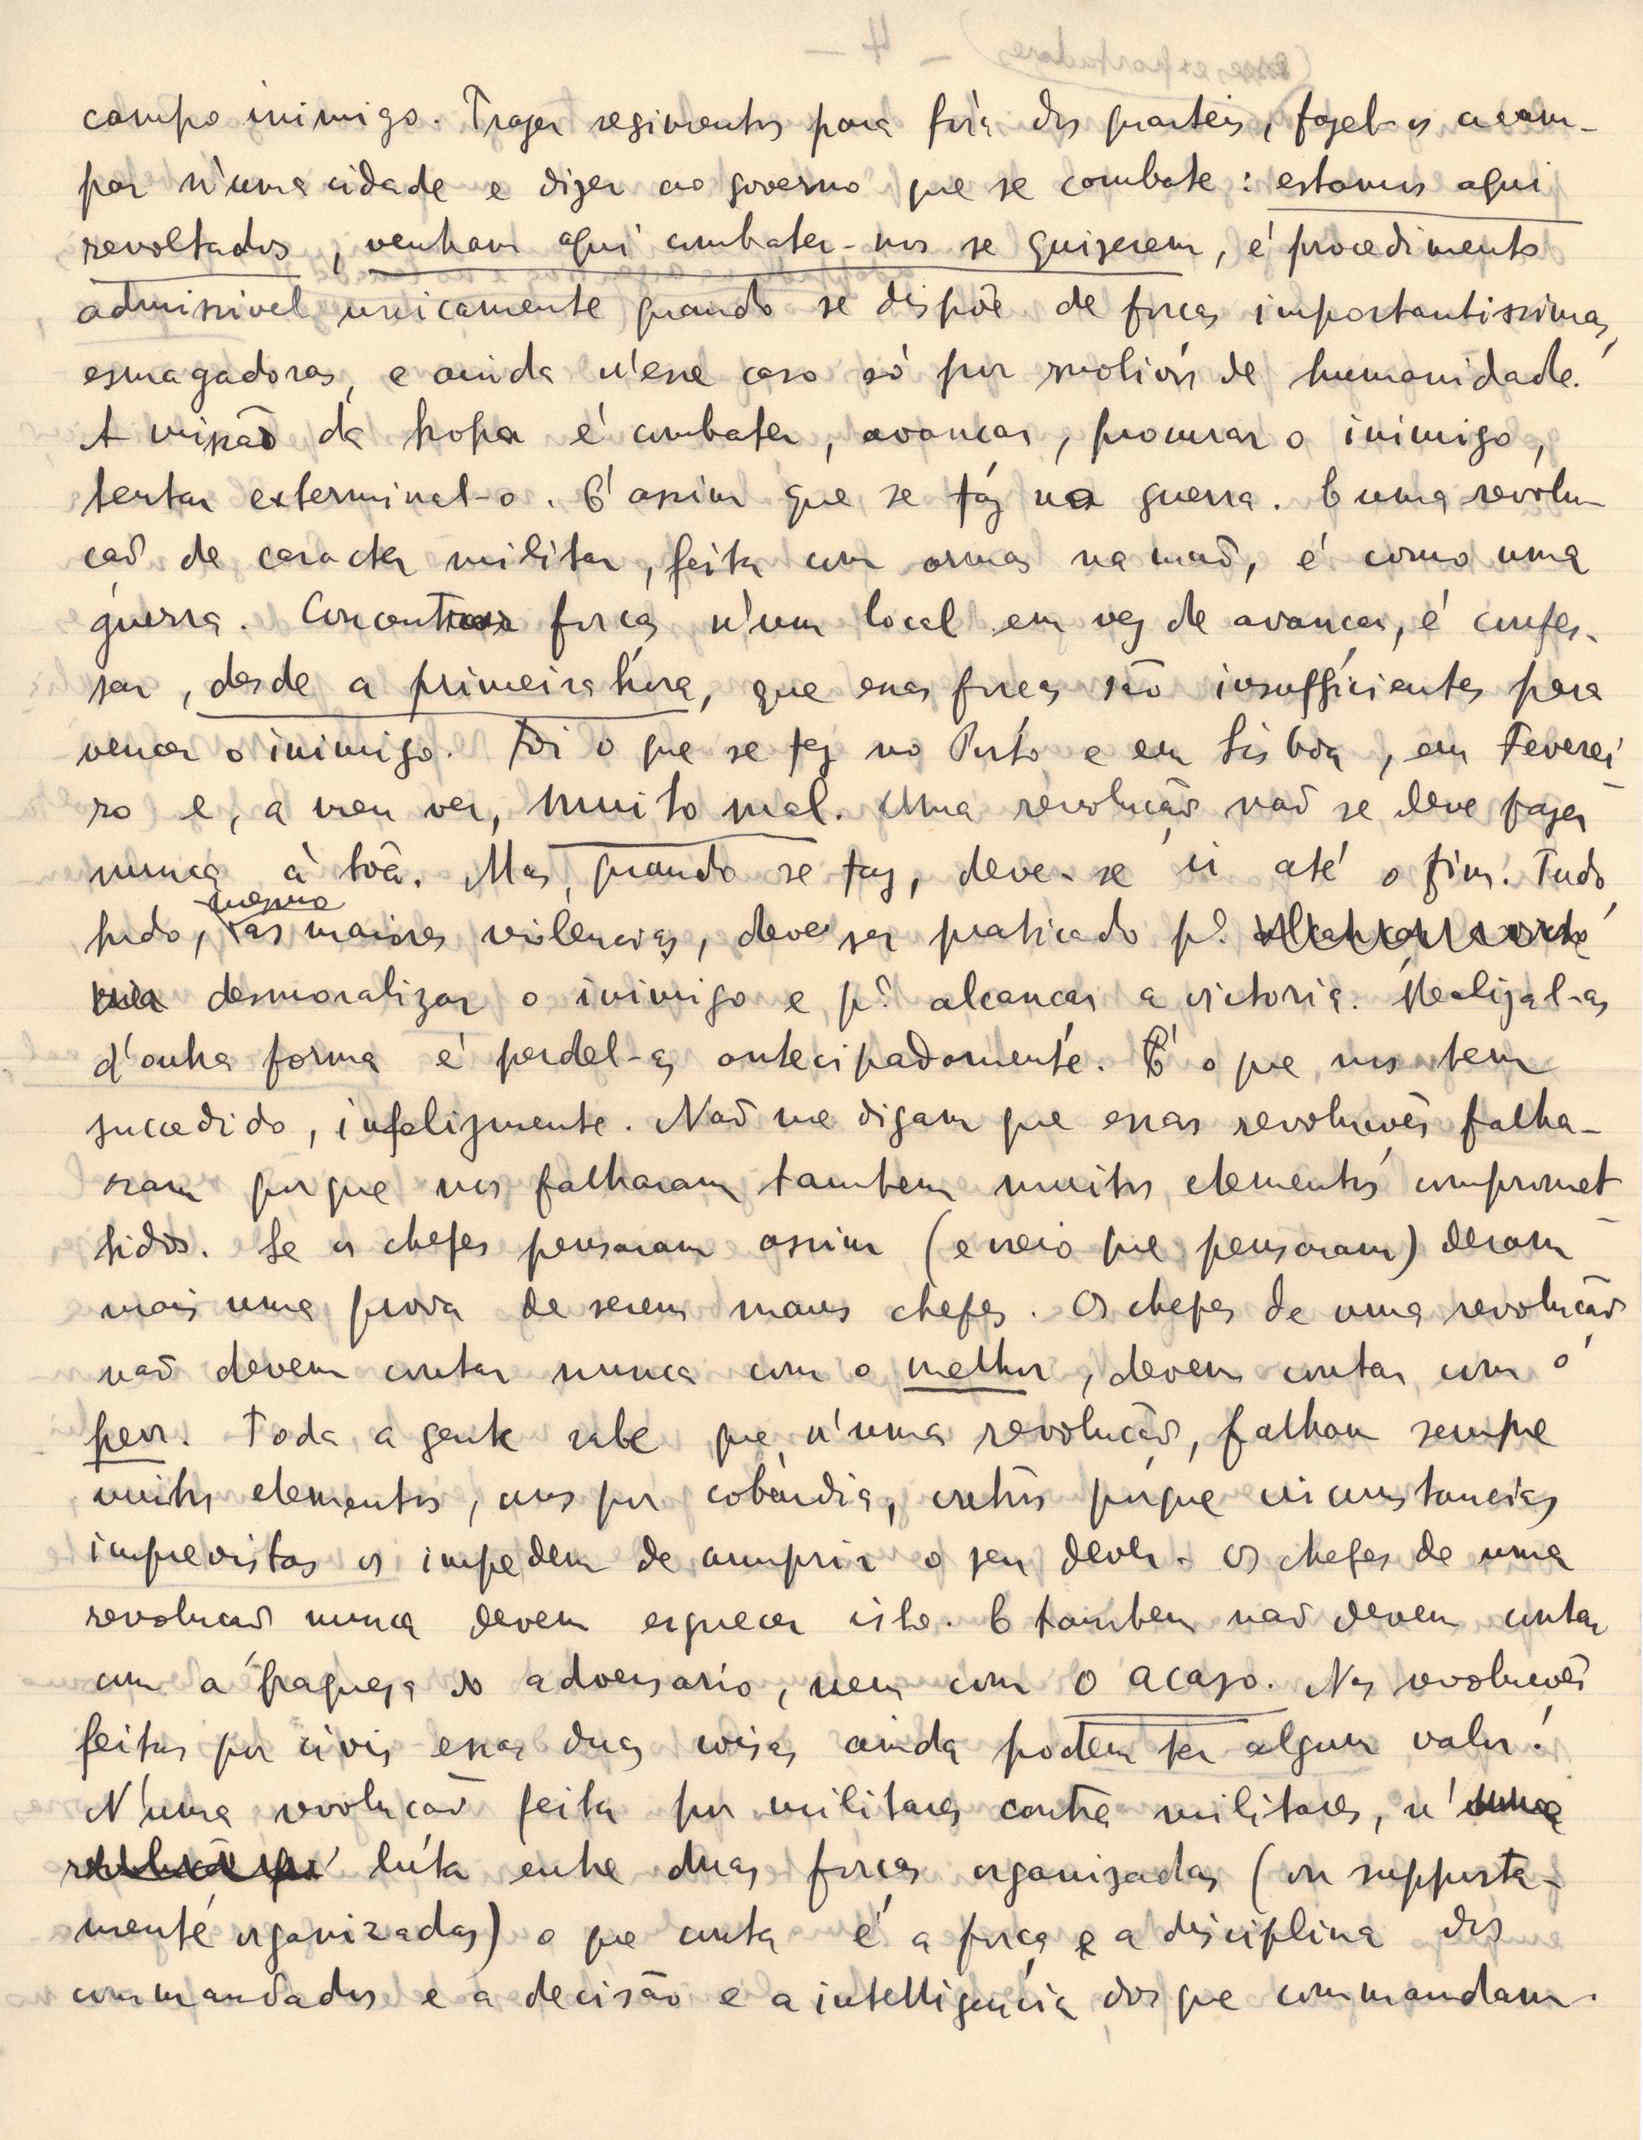 campo inimigo. Trazer regimentos para fóra dos quarteis, fazel-os acam-
par n'uma cidade e dizer ao governo que se combate: estamos aqui
revoltados, venham aqui combater-nos se quizerem, é procedimento
admissivel unicamente quando se dispõe de forças importantissimas,
esmagadoras, e ainda n'esse caso só por motivos de humanidade.
A missão da tropa é combater, avançar, procurar o inimigo,
tentar exterminal-o. É assim que se faz na guerra. E uma revolu-
ção de caracter militar, feita com armas na mão, é como uma
guerra. Concentrar forças n'um local em vez de avançar, é confes-
sar, desde a primeira hora, que essas forças são insufficientes para
vencer o inimigo. Foi o que se fez no Porto e em Lisboa, em Feverei-
ro e, a meu ver, muito mal. Uma revolução não se deve fazer
nunca à tôa. Mas, quando se faz, deve-se ir até o fim. Tudo,
mesmo
tudo, as maiores violencias, deve ser praticado pª alcançar a victo
ria desmoralizar o inimigo e pª alcançar a victoria. Realizal-as
d'outra forma é perdel-as antecipadamente. É o que nos tem
succedido, infelizmente. Não me digam que essas revoluções falha-
ram porque nos falharam tambem muitos elementos compromet
tidos. Se os chefes pensaram assim (e creio que pensaram) deram
mais uma prova de serem maus chefes. Os chefes de uma revolução
não devem contar nunca com o melhor, devem contar com o
peor. Toda a gente sabe que, n'uma revolução, falham sempre
muitos elementos, uns por cobardia, outros porque circumstancias
imprevistas os impedem de cumprir o seu dever. Os chefes de uma
revolução nunca devem esquecer isto. E tambem não devem contar
com a fraqueza do adversario, nem com o acaso. Nas revoluções
feitas por civis essas duas coisas ainda podem ter algum valor.
N'uma revolução feita por militares contra militares, n'uma
lúta entre duas forças organizadas (ou supposta-
mente organizadas) o que conta é a força e a disciplina dos
commandados e a decisão e a intelligencia dos que commandam.